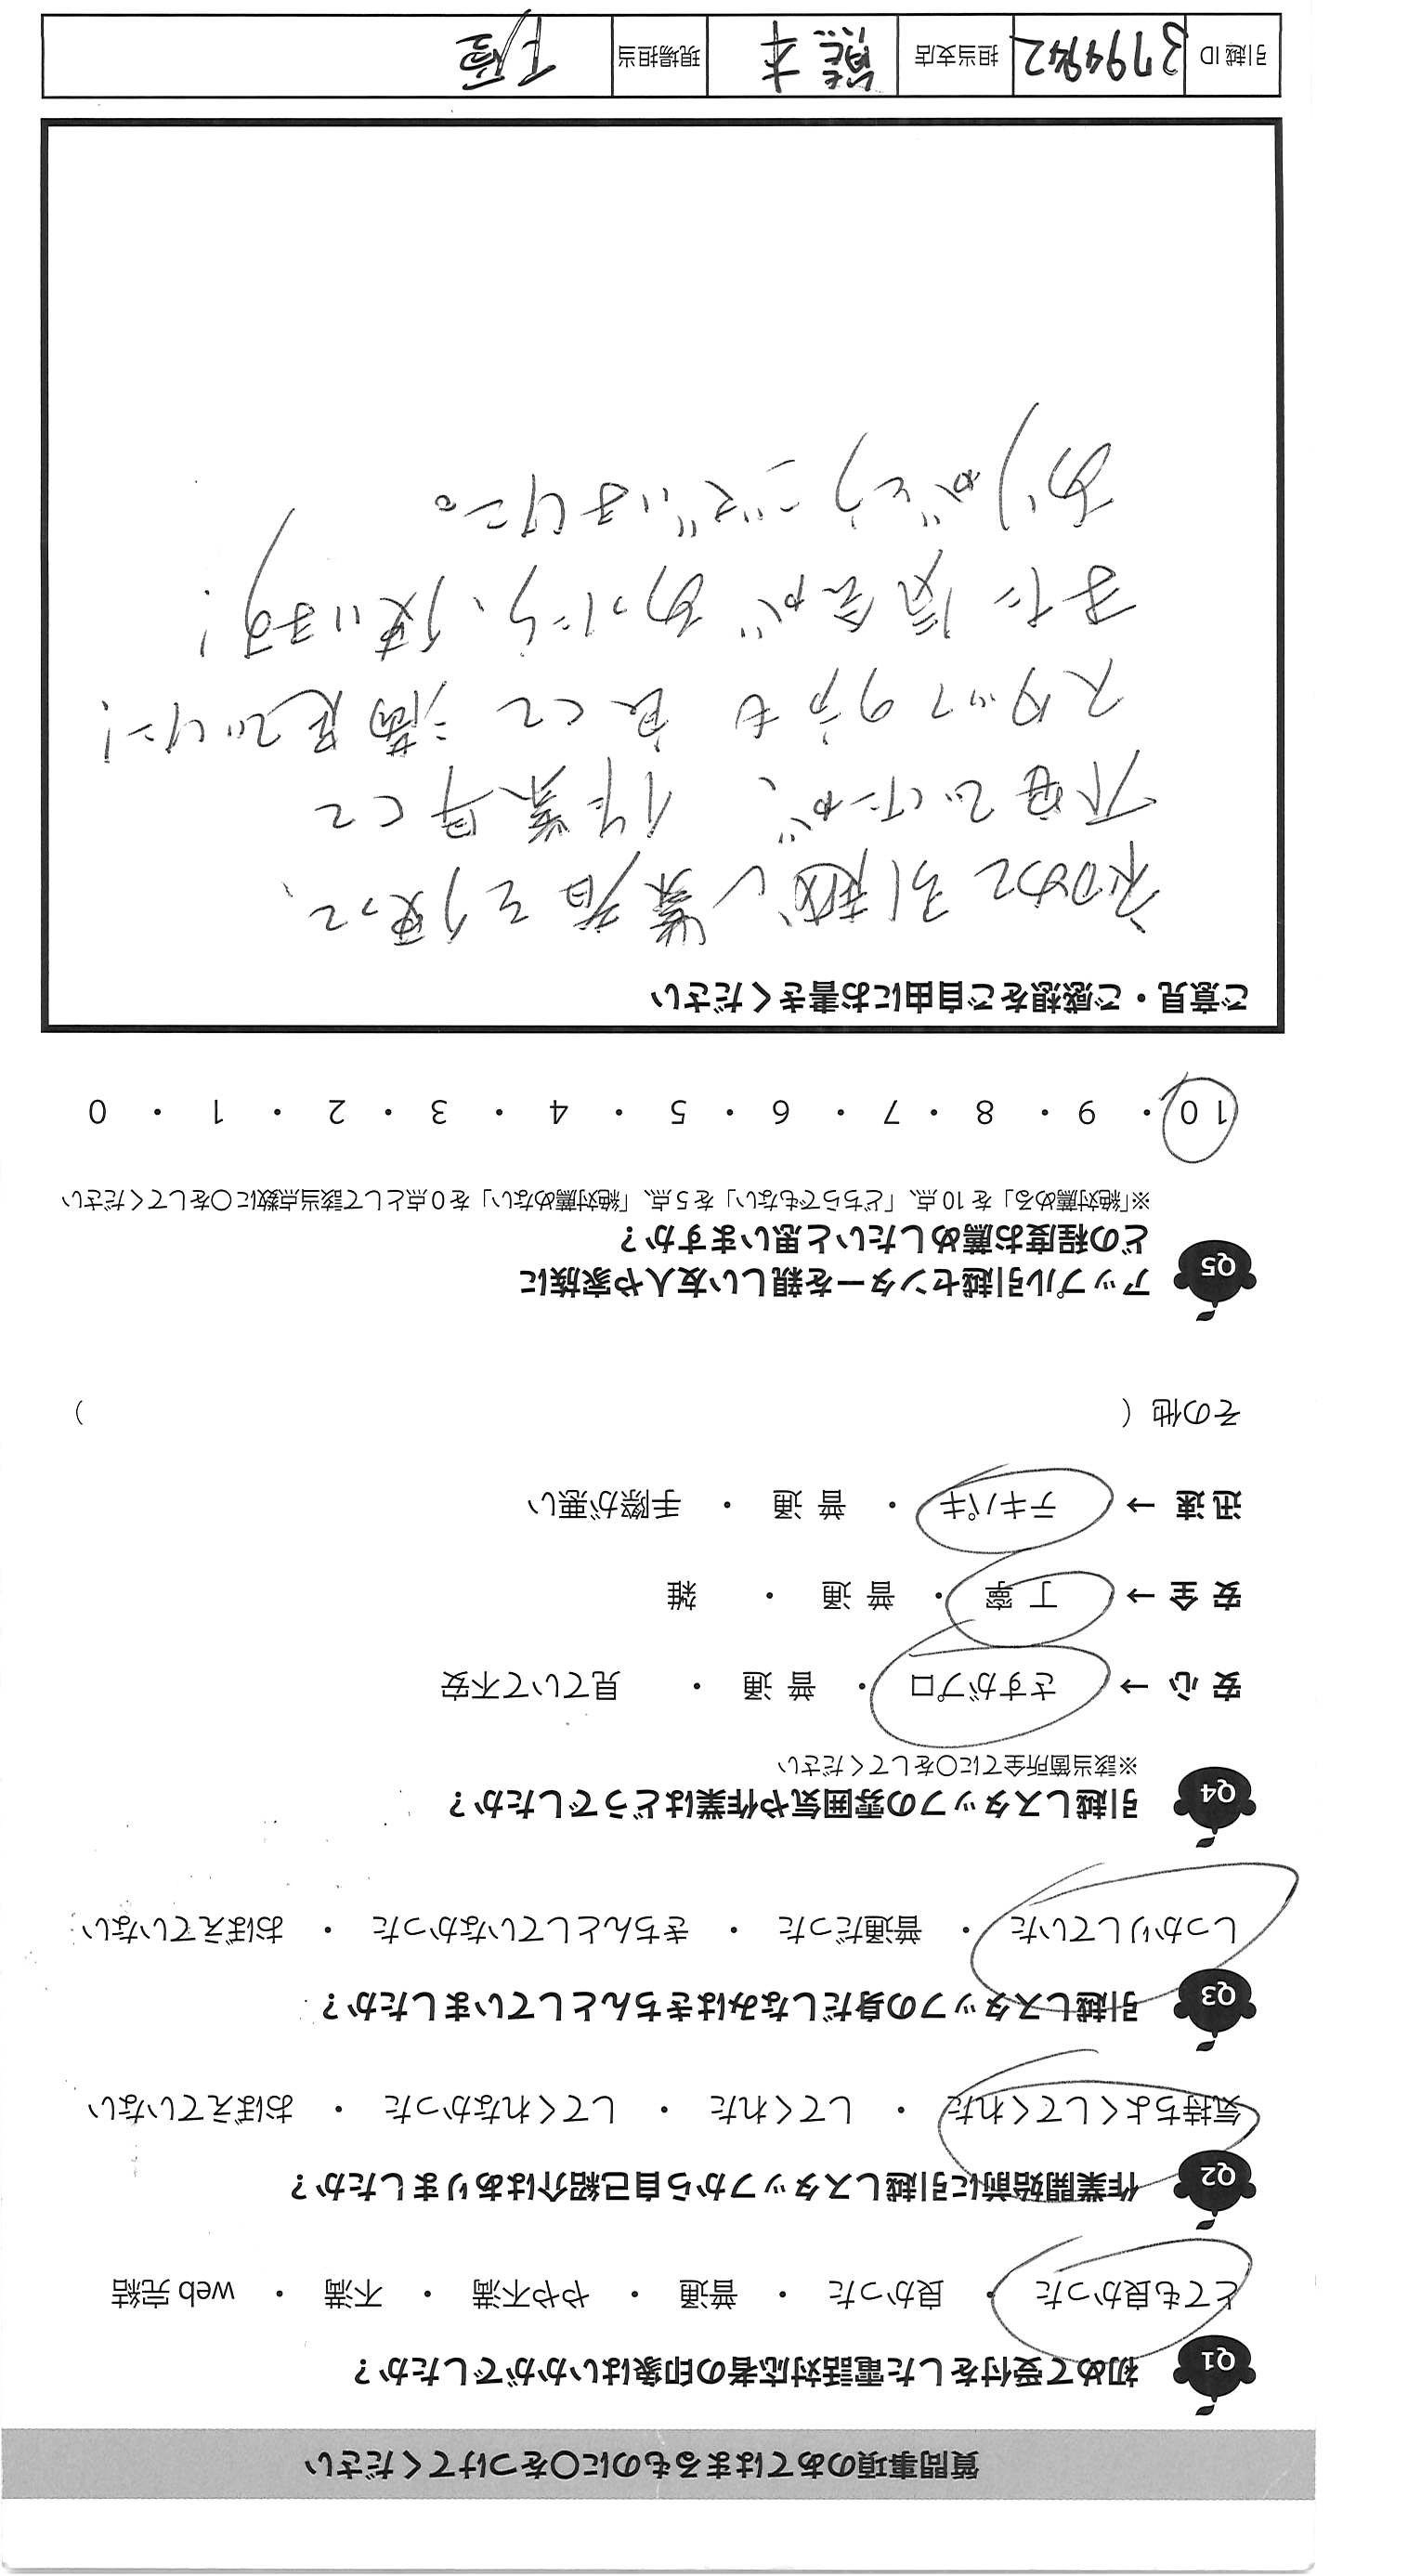 質問事項のあてはまるものに〇をつけてください
Q1 初めて受付をした電話対応者の印象はいかがでしたか？
とても良かった ・ 良かった ・ 普通 ・ やや不満 ・ 不満 ・ web 完結
Q2 作業開始前に引越しスタッフから自己紹介はありましたか？
気持ちよくしてくれた ・ してくれた ・ してくれなかった ・ おぼえていない
Q3 引越しスタッフの身だしなみはきちんとしていましたか？
しっかりしていた ・ 普通だった ・ きちんとしていなかった ・ おぼえていない
Q4 引越しスタッフの雰囲気や作業はどうでしたか？
※該当箇所全てに〇をしてください
安 心 → さすがプロ ・ 普 通 ・ 見ていて不安
安 全 → 丁 寧 ・ 普 通 ・ 雑
迅 速 → テキパキ ・ 普 通 ・ 手際が悪い
その他（ ）
Q5 アップル引越センターを親しい友人や家族に
どの程度お薦めしたいと思いますか？
※「絶対薦める」を 10 点、「どちらでもない」を 5 点、「絶対薦めない」を 0 点として該当点数に〇をしてください
10 ・ 9 ・ 8 ・ 7 ・ 6 ・ 5 ・ 4 ・ 3 ・ 2 ・ 1 ・ 0
ご意見・ご感想をご自由にお書きください
初めて引越し業者を使って、
不安でしたが、作業早くて
スタッフの方も良くて満足でした！
また機会があったら、使います！
ありがとうございました。
引越 ID 3794942 担当支店 熊本 現場担当